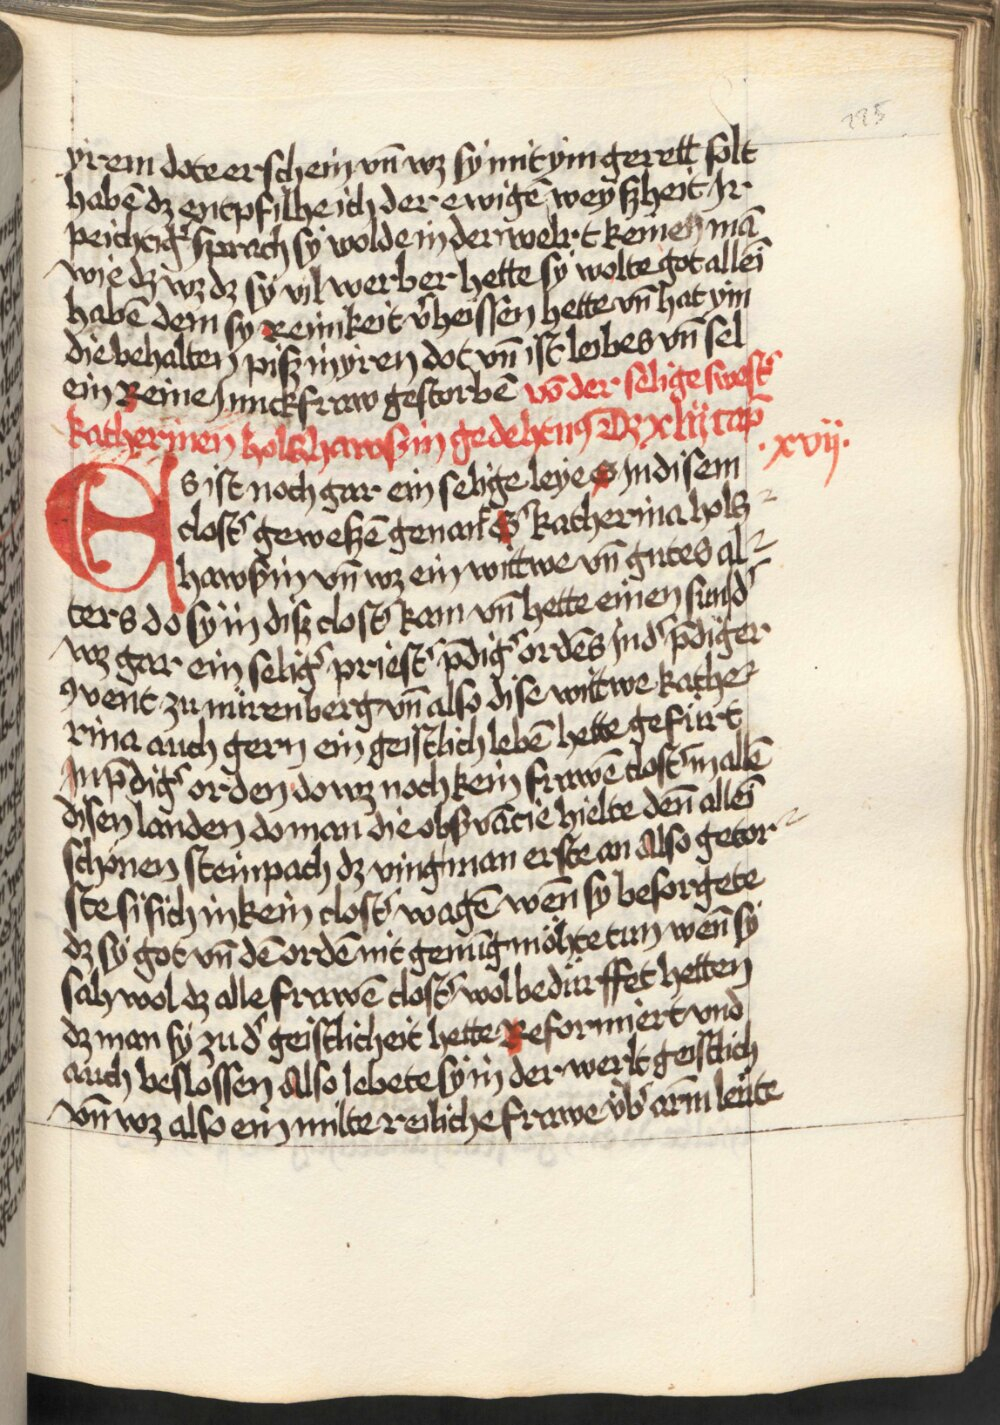 225
yrem dote erschein vn̄ wz sy mit ym gerett solt
habē dz entpfilhe ich der ewigē weyszheit Ir
peichtigˢ sprach sy wolde in der werlt keinen mā
wie dz wz dz sy vil werber hette sy wolte got allei̅
habē dem sy Reinikeit v̓heissen hette vn̄ hat ym
die behalten pisz in yren dot vn̄ ist leibes vn̄ sel
ein Reine Junckfraw gestorbē vō der selige swestˢ
katherinen holczhawszin gedehtnꝰ Dz xlij cap̄
.xvij.
Es ist noch gar ein selige leye s In disem
clostˢ geweszē genant sˢ katherina holcz
hawszin vn̄ wz ein wittwe vn̄ gutes al
ters do sy in disz clostˢ kam vn̄ hette einen sun dˢ
wz gar ein seligˢ priestˢ p̄digˢ ordēs In dˢ p̄diger
ꝯvent zu nürenberg vn̄ also dise wittwe kathe
rina auch gern ein geistlich lebē hette gefürt
In p̄digˢ orden do wz noch kein frawē clostˢ in allē
disen landen do man die obsˢvācie hielte den̄ allei̅
schönen steinpach dz ving man erste an Also getor
ste si sich in kein clostˢ wagē wen̄ sy besorgete
dz sy got vn̄ dē ordē nit genūg möhte tun wen̄ sy
sah wol dz alle frawē clostˢ wol bedürffet hetten
dz man sy zu dˢ geistlicheit hette Reformiert vnd
auch beslossen Also lebete sy in der werlt geistlich
vn̄ wz also ein milte reiliche frawe v̈bˢ arm̄ leüte